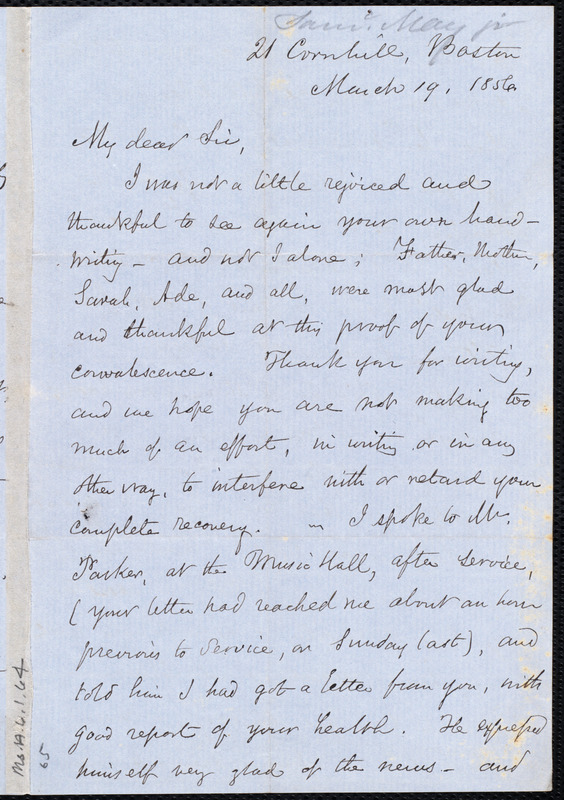 Saml. May jr
21 Cornhill, Boston
March 19, 1856
My dear Sir,
I was not a little rejoiced and
thankful to see again your own hand-
writing - and not I alone; Father, Mother,
Sarah, Ade, and all, were most glad
and thankful at this proof of your
convalescence. Thank you for writing,
and we hope you are not making too
much of an effort, in writing or in any
other way, to interfere with or retard your
complete recovery. - I spoke to Mr.
Parker, at the Music Hall, after service,
(your letter had reached me about an hour
previous to service, on Sunday last), and
told him I had got a letter from you, with
good report of your health. He expressed
himself very glad of the news - and
Ms.A.6.1.64
65